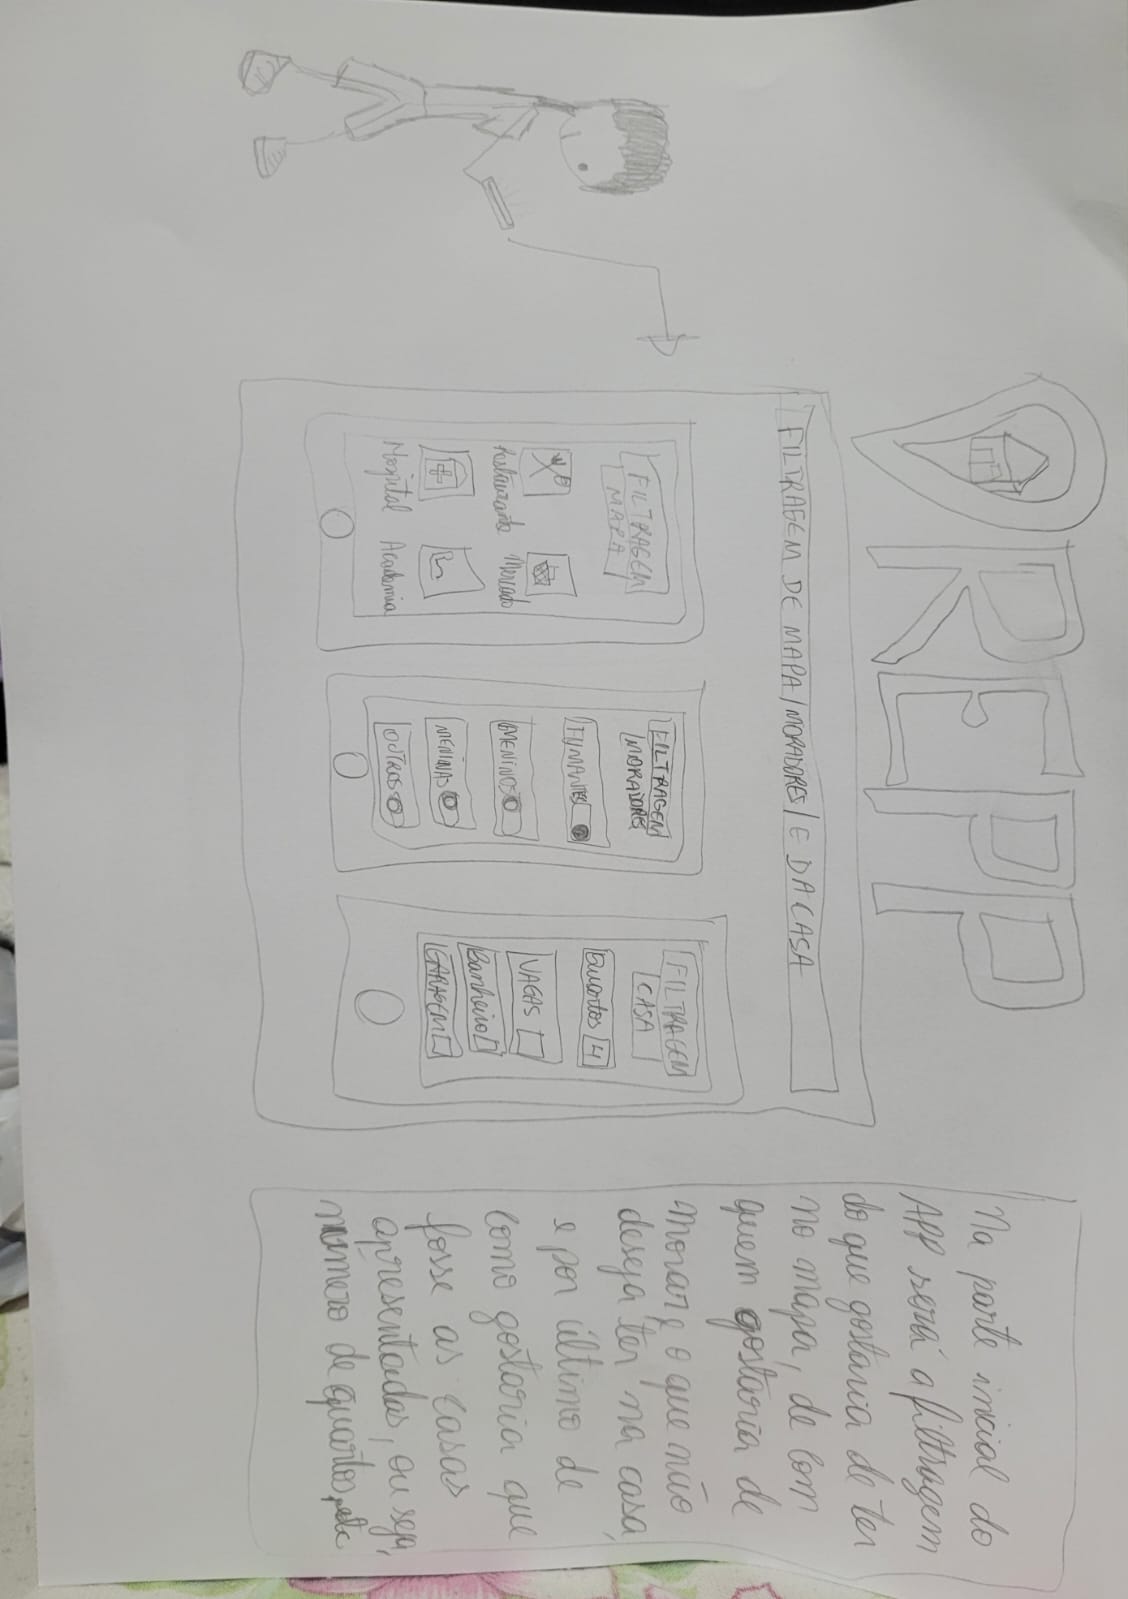 REPP
FILTRAGEM DE MAPA/MORADORES/E DA CASA
FILTRAGEM
MAPA
Restaurante Mercado
Hospital Academia
FILTRAGEM
MORADORES
FUMANTES
MENINOS
MENINAS
OUTROS
FILTRAGEM
CASA
Quartos 4
VAGAS
Banheiro
GARAGEM
Na parte inicial do
APP será a filtragem
do que gostaria de ter
no mapa, de com
quem gostaria de
morar e o que não
deseja ter na casa,
e por último de
como gostaria que
fosse as casas
apresentadas, ou seja,
número de quartos, etc